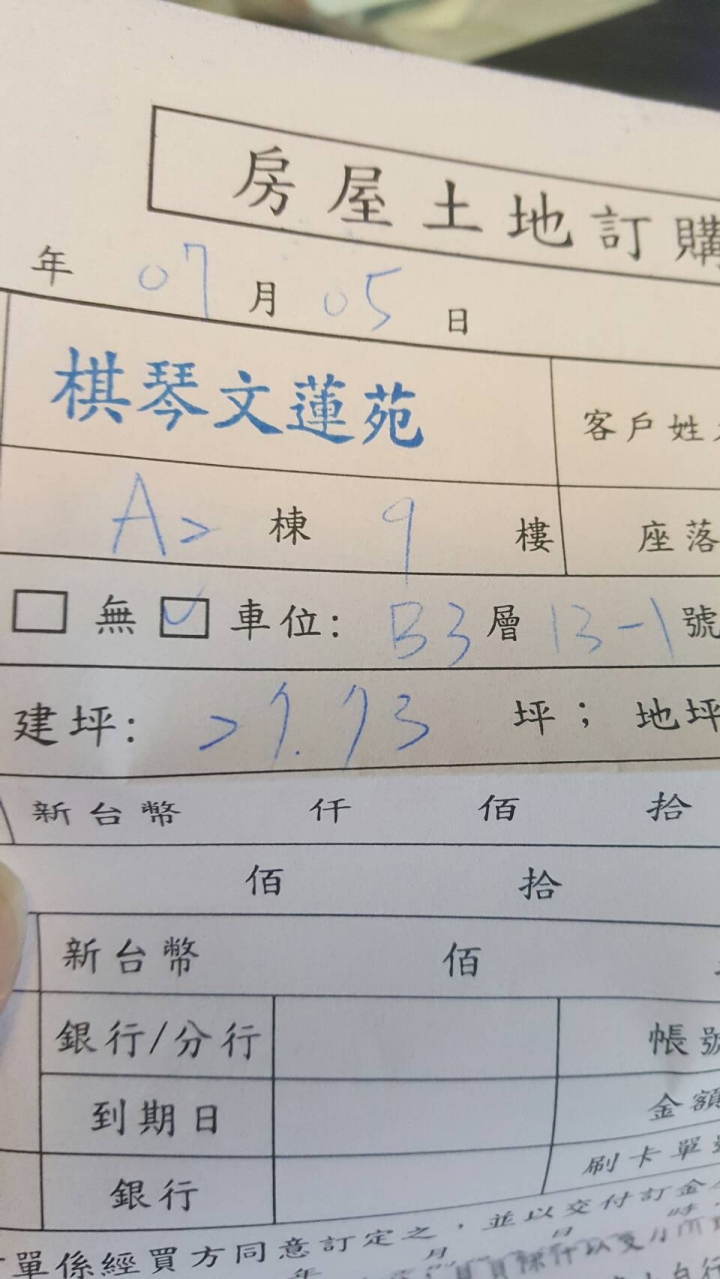 房屋土地訂購
年 07 月 05 日
棋琴文蓮苑 客戶姓
A2 棟 9 樓 座落
□ 無 ☑ 車位: B3 層 13-1 號
建坪: 27.73 坪; 地坪
新台幣 仟 佰 拾
佰 拾
新台幣 佰
銀行/分行 帳號
到期日 金額
銀行 刷卡單
單係經買方同意訂定之,並以交付訂金
年 月 日 時